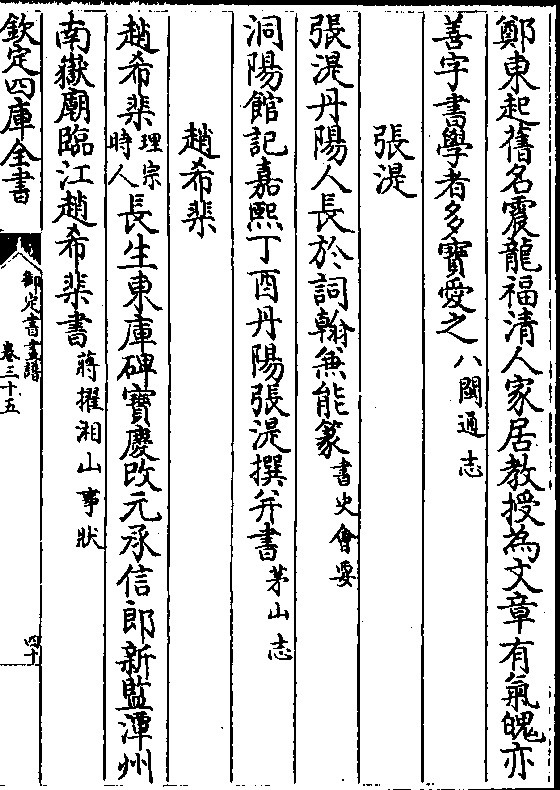 鄭東起舊名震龍福清人家居教授為文章有氣魄亦
善字書學者多寶愛之八閩通志
張湜
張湜丹陽人長於詞翰兼能篆書史會要
洞陽館記嘉熙丁酉丹陽張湜撰并書茅山志
趙希棐
趙希棐理宗時人長生東庫碑寶慶改元承信郎新監潭州
南嶽廟臨江趙希棐書蔣擢湘山事狀
欽定四庫全書
御定書畫譜
卷三十五
四十